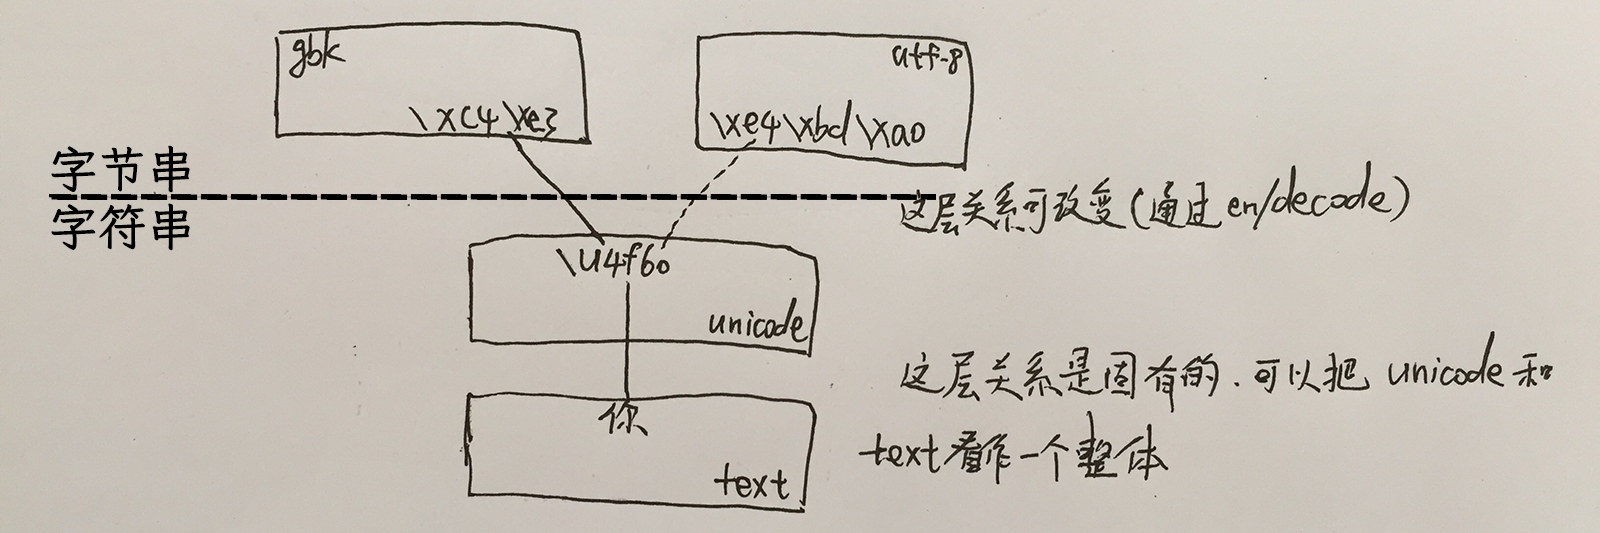 gbk
\xc4\xe3
utf-8
\xe4\xbd\xa0
字节串
字符串
这层关系可改变(通过en/decode)
\u4f60
unicode
这层关系是固有的.可以把 unicode 和
text看作一个整体
你
text